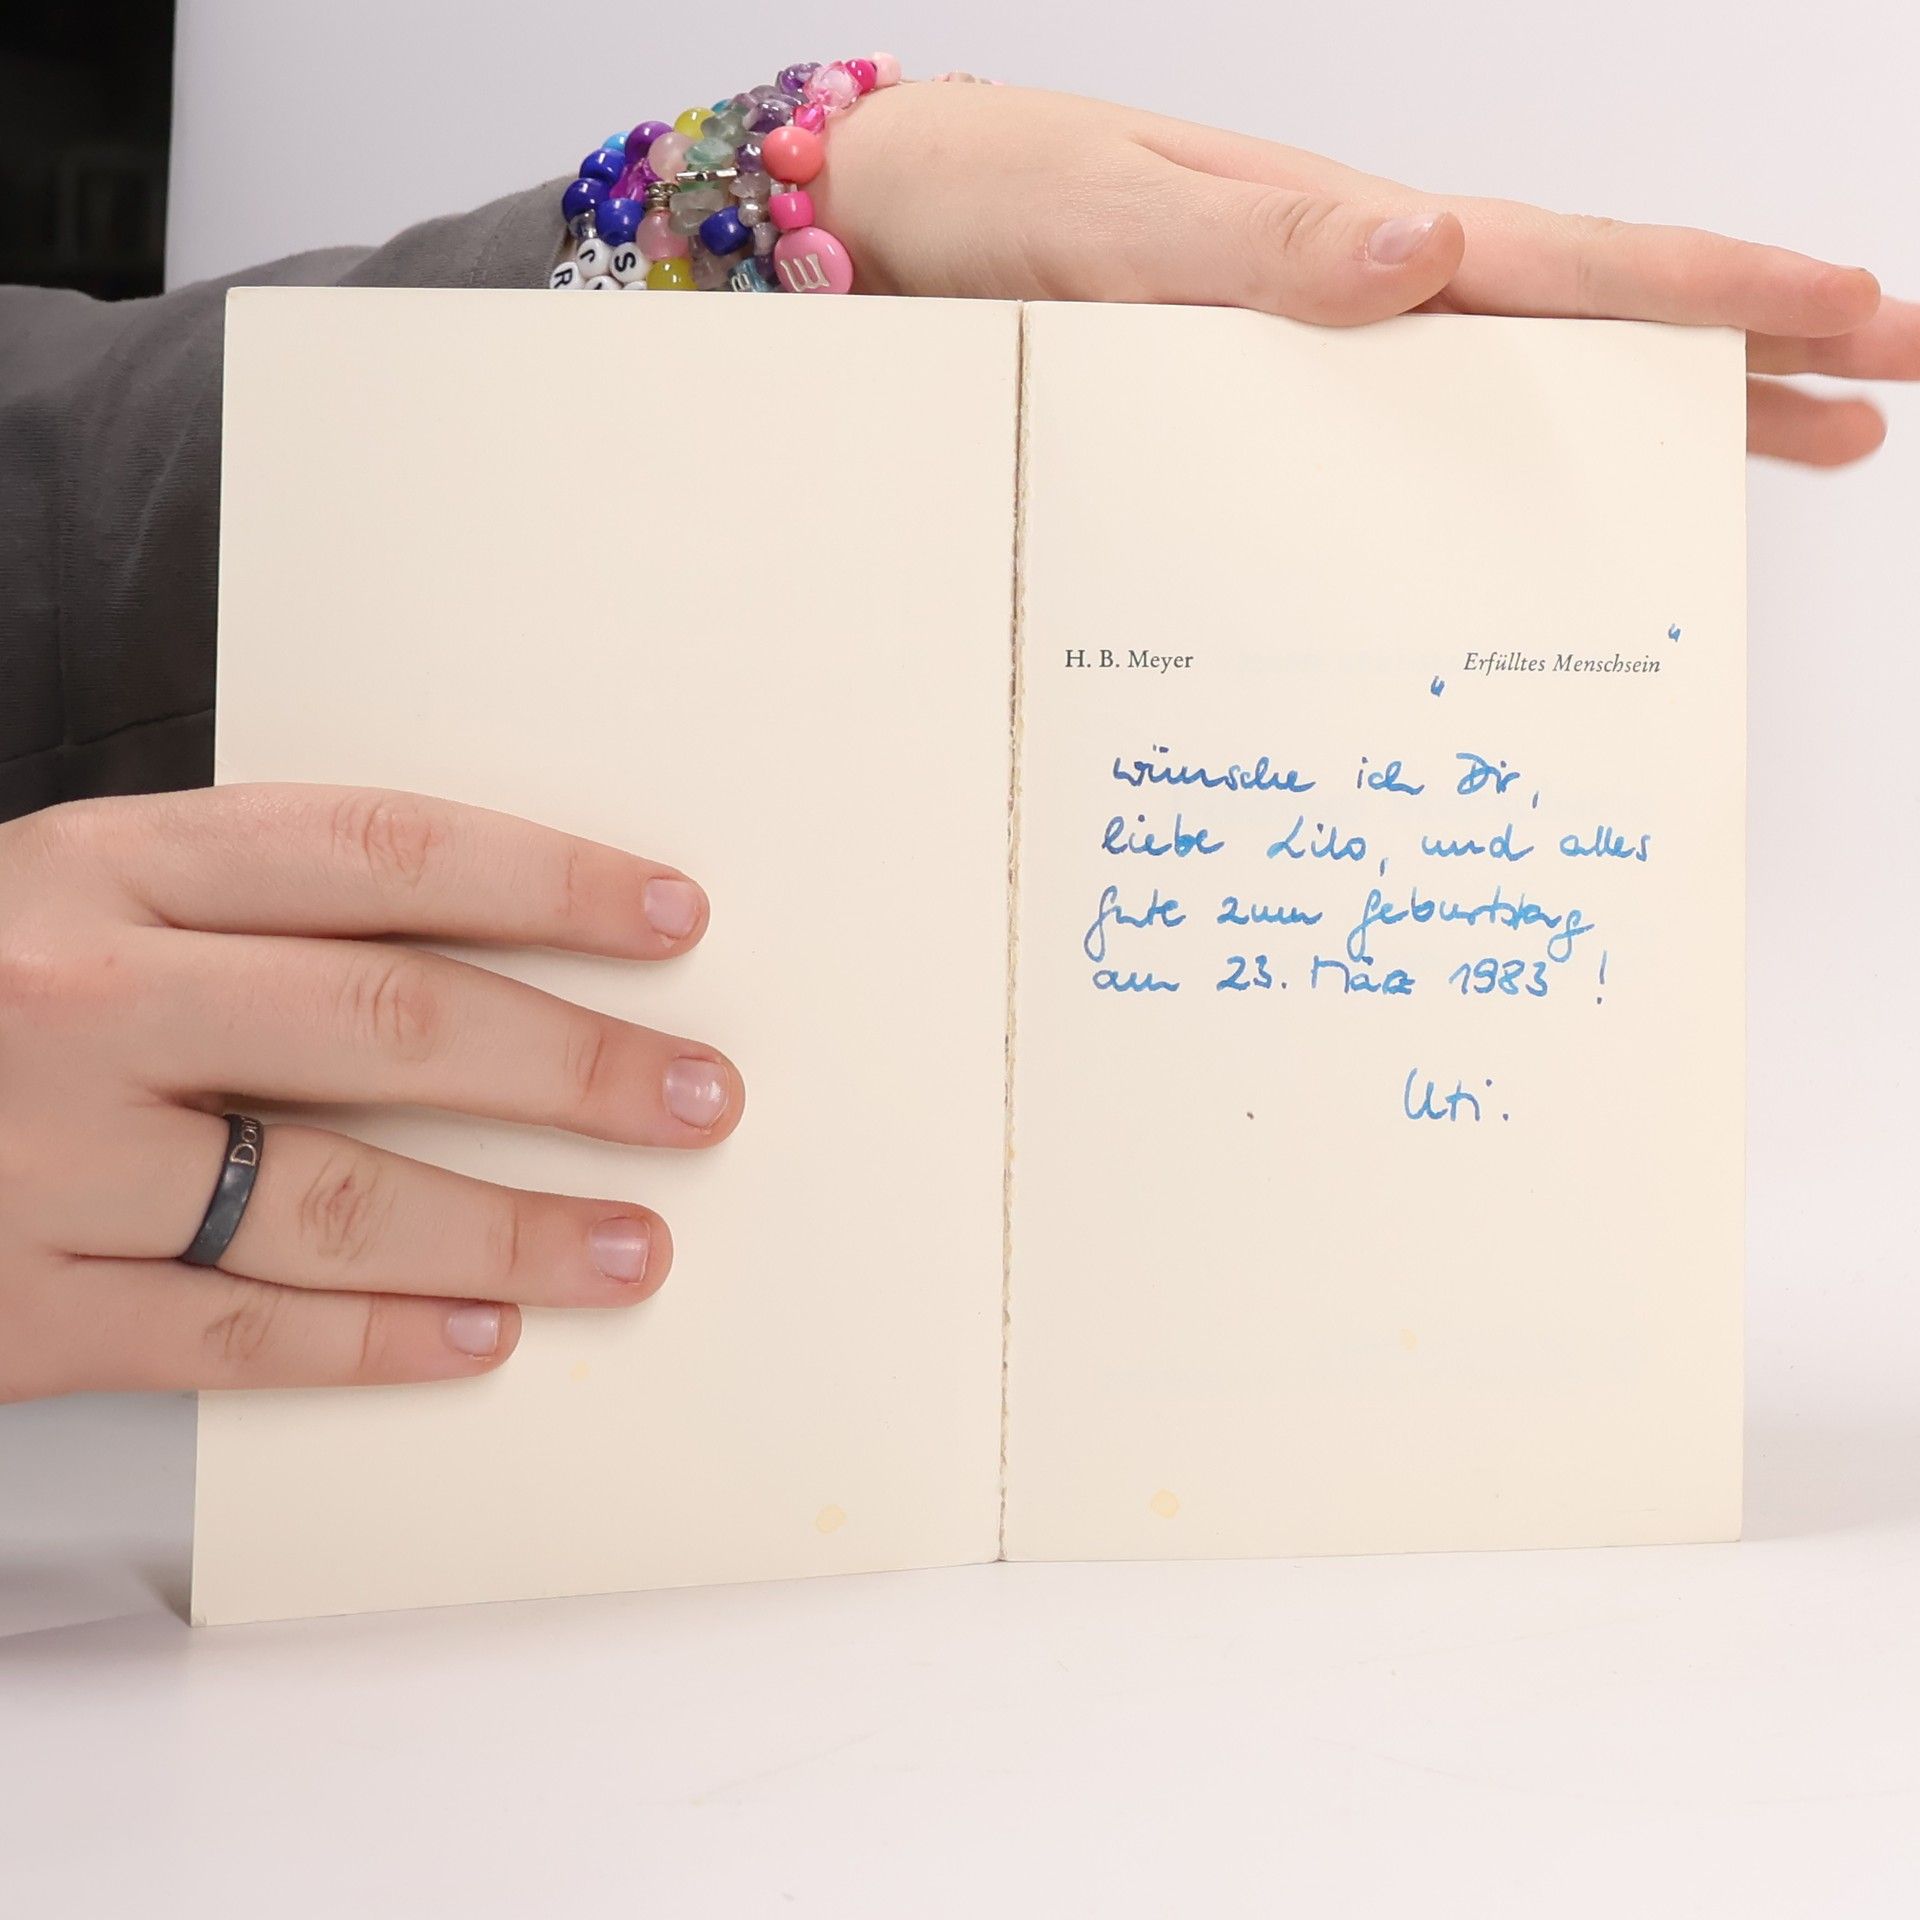 R
S
m
H. B. Meyer „Erfülltes Menschsein“
wünsche ich Dir,
liebe Lilo, und alles
Gute zum Geburtstag
am 23. März 1983 !
Uti.